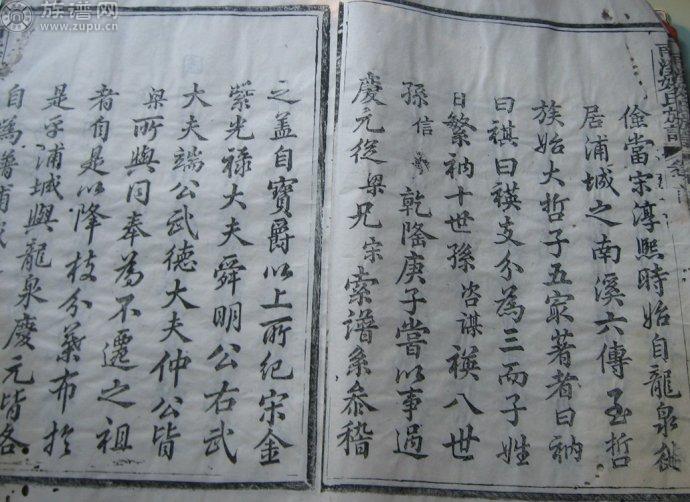 族谱网
www.zupu.cn
儉當宋淳熙時始自龍泉徙
居浦城之南溪六傳至哲
族始大哲子五最著者曰衲
曰祺曰䄃支分爲三而子姓
日繁衲十世孫咨謀䄃八世
孫信乾隆庚子嘗以事過
慶元從梁兄宗索譜系叅稽
之盖自寶爵以上所紀宋金
紫光祿大夫舜明公右武
大夫端公武德大夫仲公皆
梁所與同奉為不遷之祖
者自是以降枝分葉布於
是乎浦城與龍泉慶元皆各
自爲譜浦城